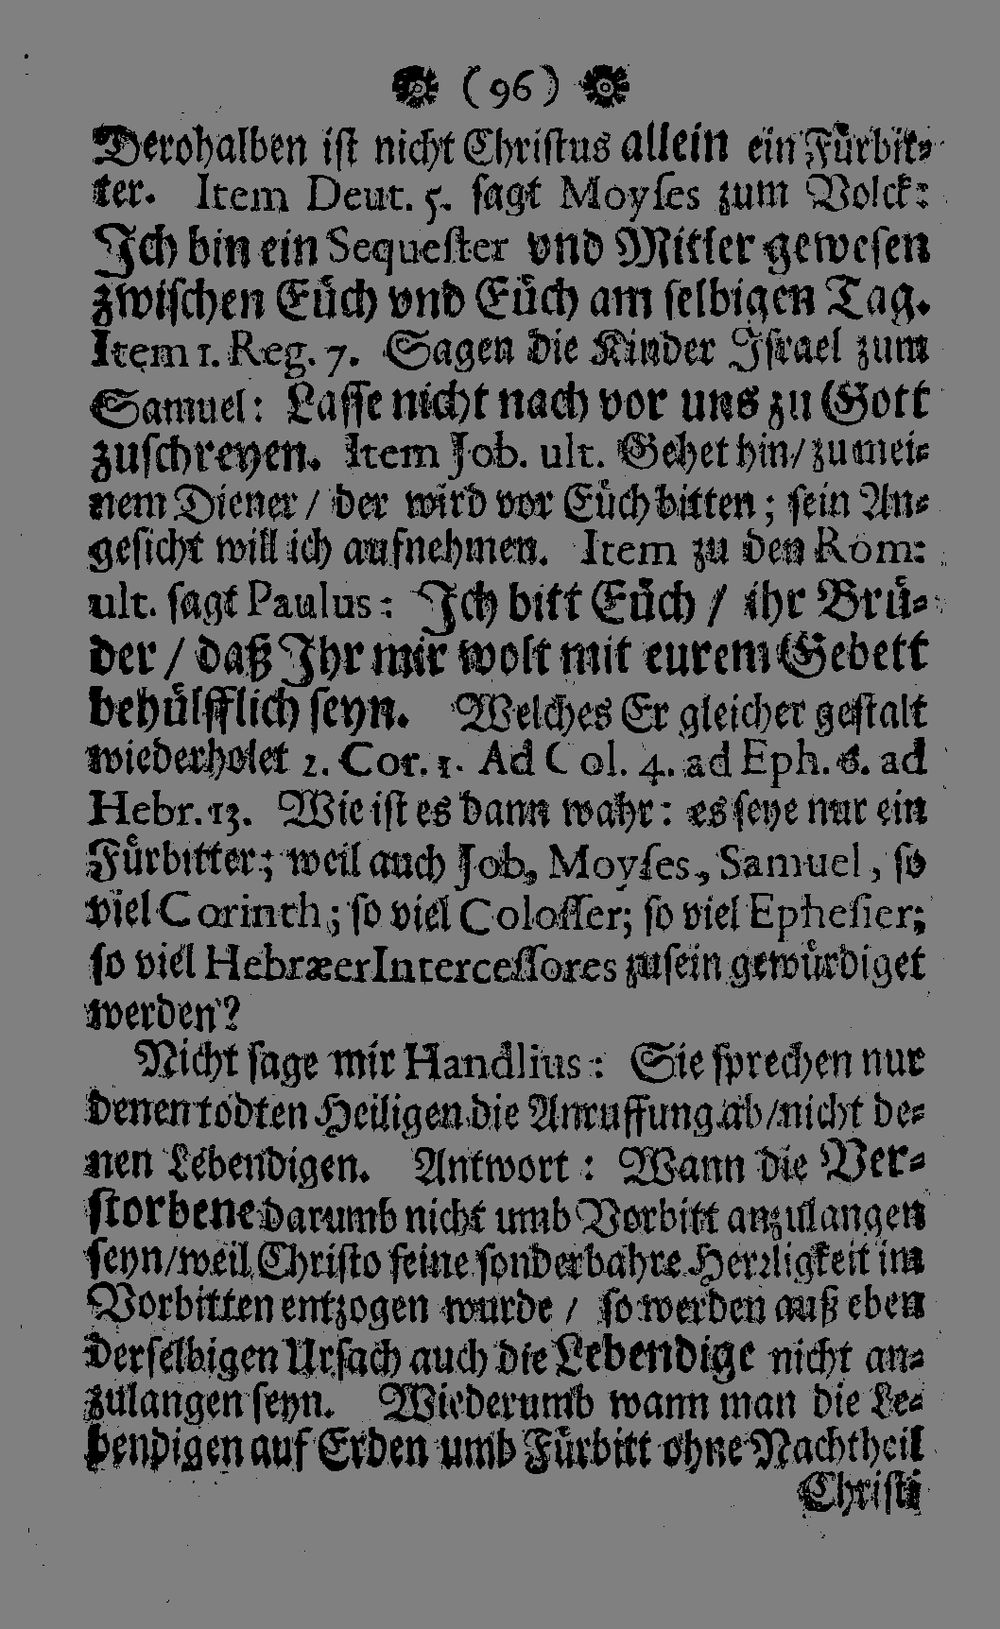 (96)
Derohalben ist nicht Christus allein ein Fürbit-
ter. Item Deut. 5. sagt Moyses zum Volck:
Ich bin ein Sequester vnd Mitler gewesen
zwischen Eüch vnd Eüch am selbigen Tag.
Item 1. Reg. 7. Sagen die Kinder Israel zum
Samuel: Lasse nicht nach vor uns zu Gott
zuschreyen. Item Job. ult. Gehet hin/ zu mei-
nem Diener / der wird vor Eüch bitten; sein An-
gesicht will ich aufnehmen. Item zu den Rom:
ult. sagt Paulus: Ich bitt Eüch / ihr Brü-
der / daß Ihr mir wolt mit eurem Gebett
behülfflich seyn. Welches Er gleicher gestalt
wiederholet 2. Cor. 1. Ad Col. 4. ad Eph. 6. ad
Hebr. 13. Wie ist es dann wahr: es seye nur ein
Fürbitter; weil auch Job, Moyses, Samuel, so
viel Corinth; so viel Colosser; so viel Ephesier;
so viel Hebræer Intercessores zu sein gewürdiget
werden?
Nicht sage mir Handlius: Sie sprechen nur
denen todten Heiligen die Anruffung ab/nicht de-
nen Lebendigen. Antwort: Wann die Ver-
storbene darumb nicht umb Vorbitt anzulangen
seyn/weil Christo seine sonderbahre Herrligkeit im
Vorbitten entzogen wurde / so werden auß eben
derselbigen Ursach auch die Lebendige nicht an-
zulangen seyn. Wiederumb wann man die Le-
bendigen auf Erden umb Fürbitt ohne Nachtheil
Christi